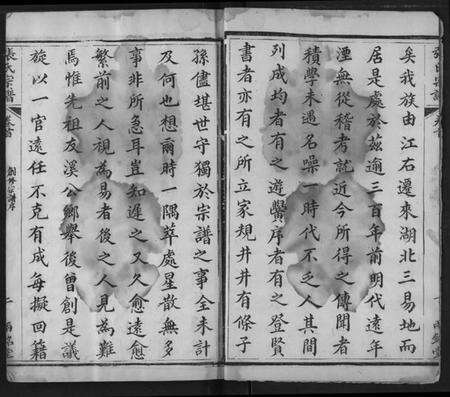 矣我族由江右遷來湖北三易地而
居是處於茲逾三百年前明代遠年
湮無從稽考就近今所得之傳聞者
積學未遇名噪一時代不乏人其間
列成均者有之遊黌序者有之登賢
書者亦有之所立家規井井有條子
孫儘堪世守獨於宗譜之事全未計
及何也想爾時一隅萃處星散無多
事非所急耳豈知遲之又久愈遠愈
繁前之人視為易者後之人見為難
焉惟先祖友溪公鄉舉後曾創是議
旋以一官遠任不克有成每擬回籍
張氏宗譜
卷首